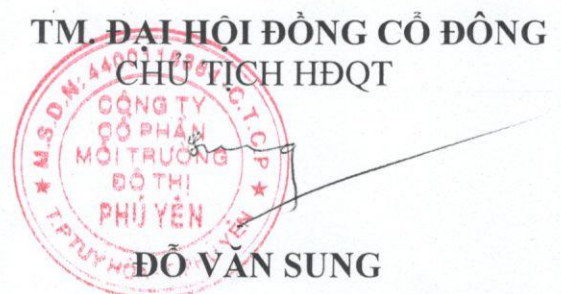 TM. ĐẠI HỘI ĐỒNG CỔ ĐÔNG
CHỦ TỊCH HĐQT
M.S.D.N:
C.T.C.P
CÔNG TY
CỔ PHẦN
MÔI TRƯỜNG
ĐÔ THỊ
PHÚ YÊN
Sung
ĐỖ VĂN SUNG